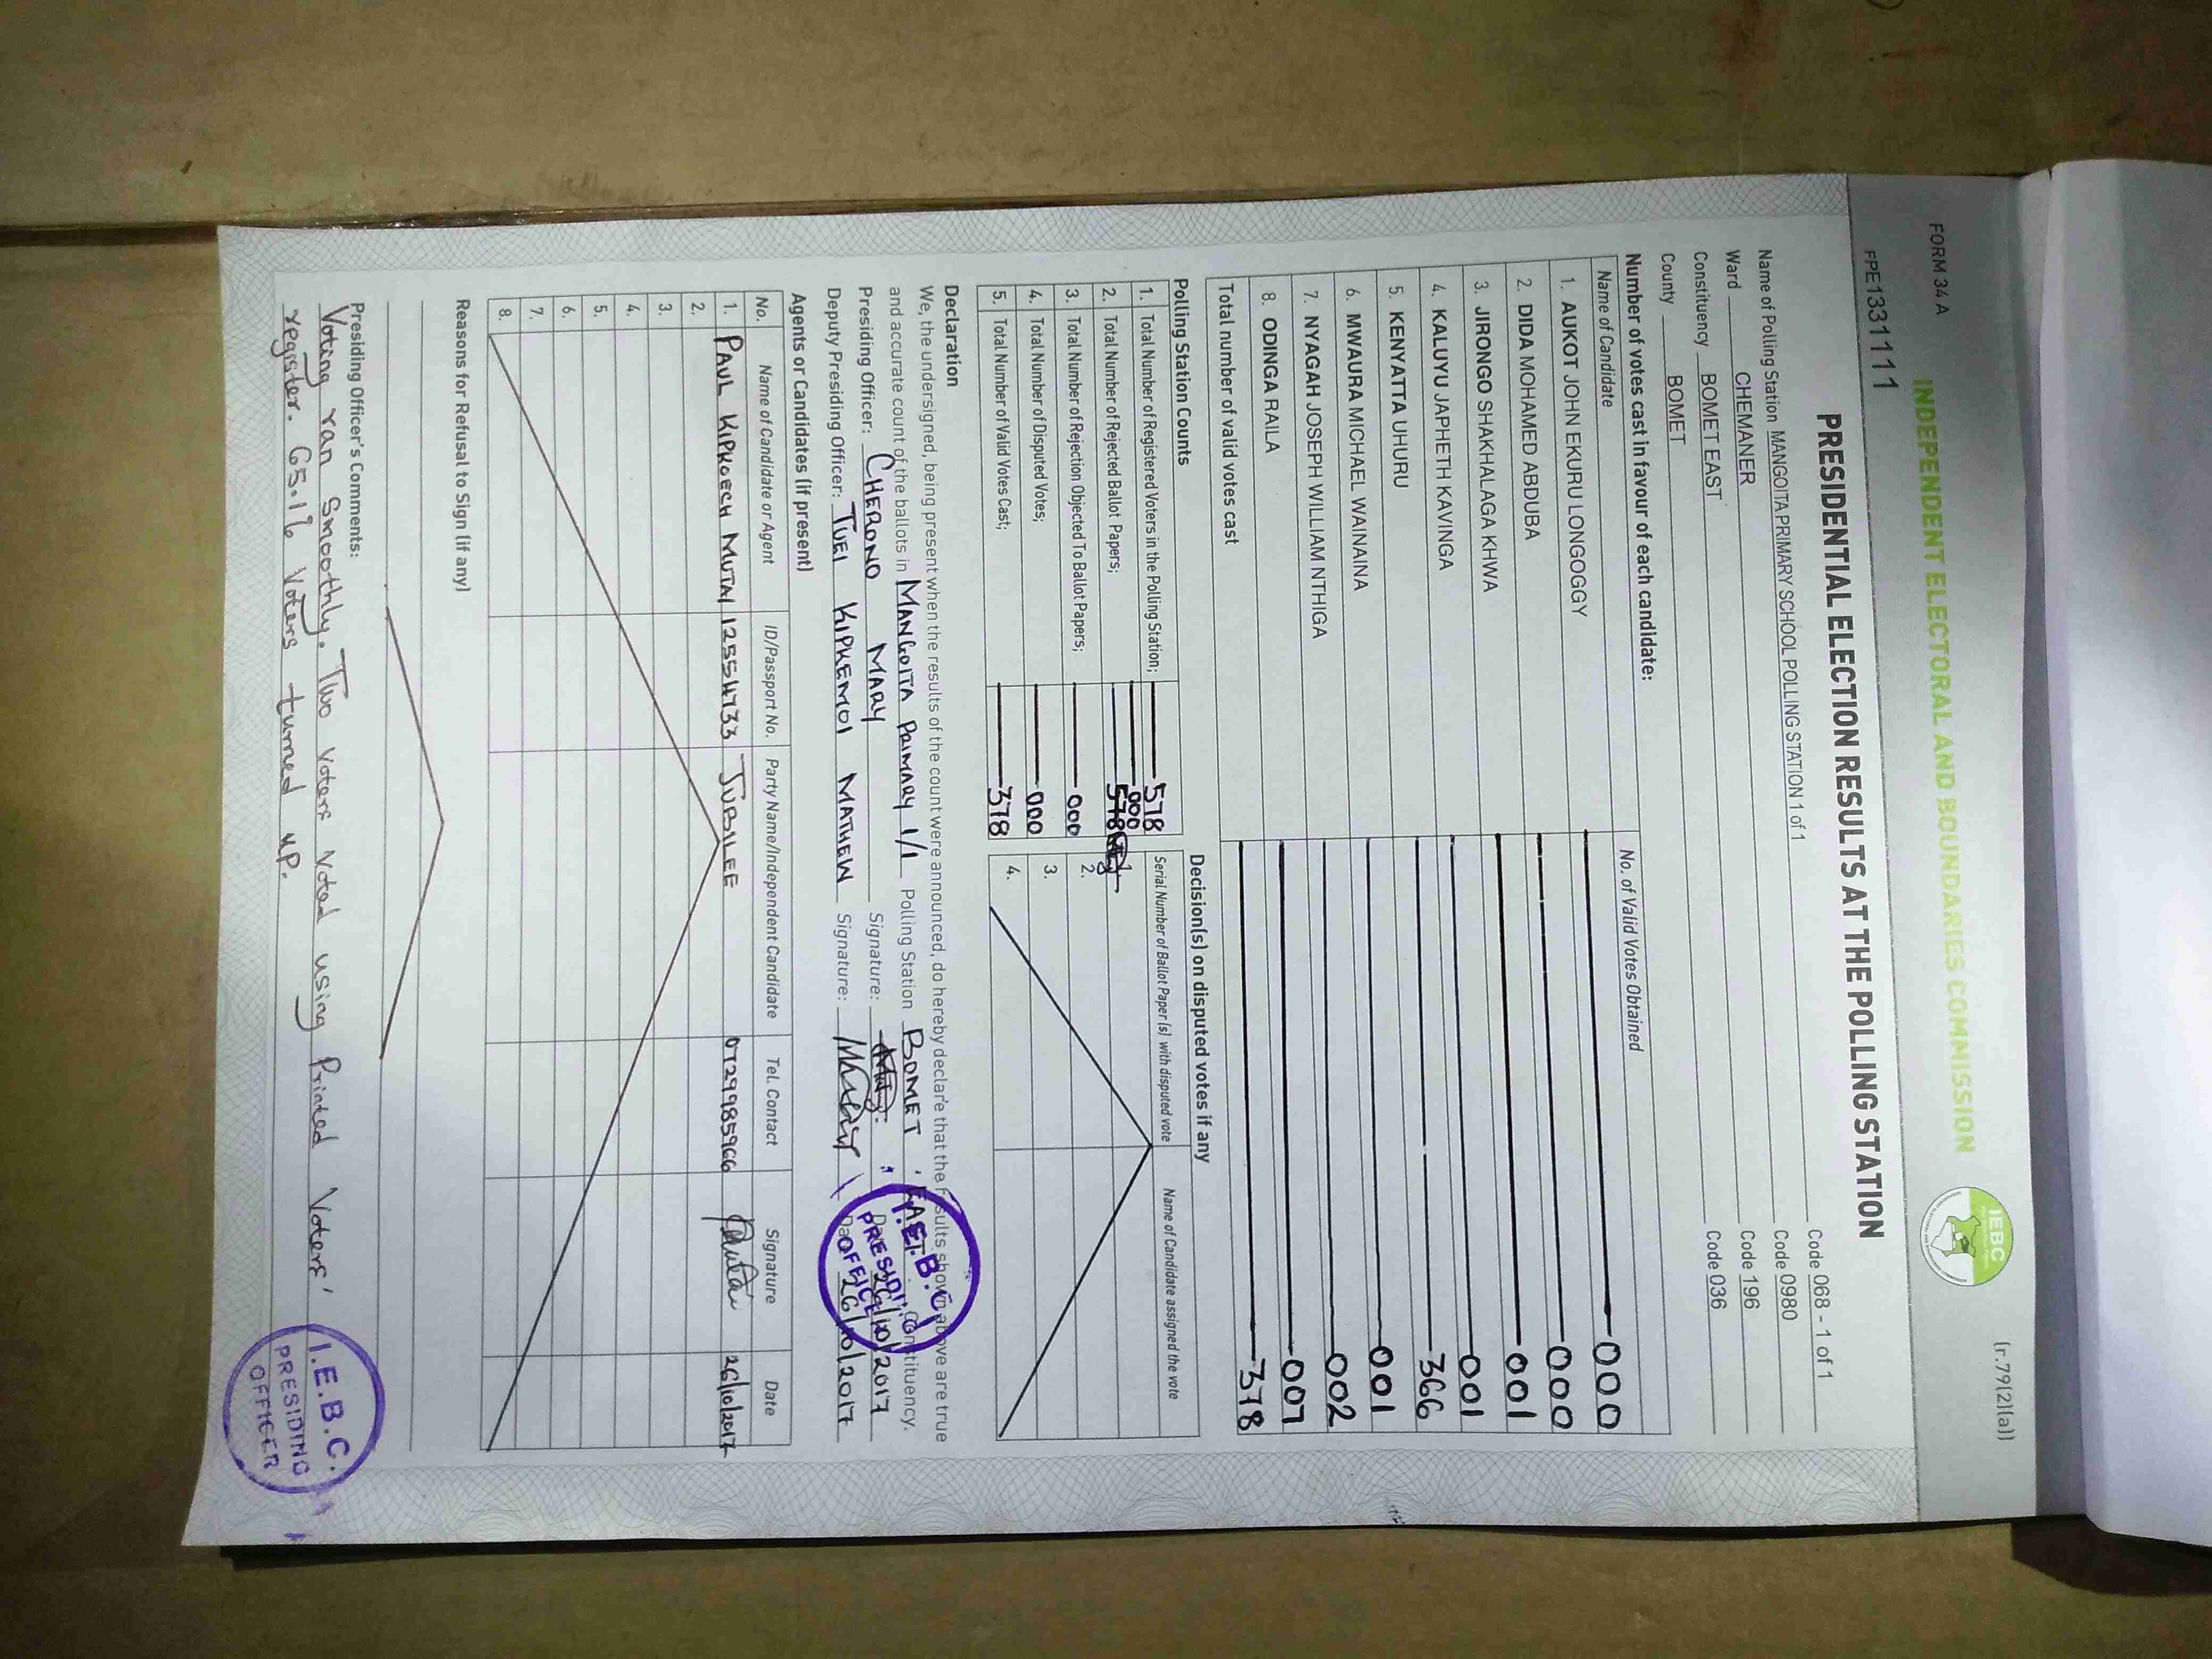 FORM 34 A
(r.79(2)(a))
INDEPENDENT ELECTORAL AND BOUNDARIES COMMISSION
IEBC
FPE133111
PRESIDENTIAL ELECTION RESULTS AT THE POLLING STATION
Name of Polling Station MANGOITA PRIMARY SCHOOL POLLING STATION 1 of 1 Code 068 - 1 of 1
Ward CHEMANER Code 0980
Constituency BOMET EAST Code 196
County BOMET Code 036
Number of votes cast in favour of each candidate:
Name of Candidate No. of Valid Votes Obtained
1. AUKOT JOHN EKURU LONGOGGY 000
2. DIDA MOHAMED ABDUBA 000
3. JIRONGO SHAKHALAGA KHWA 001
4. KALUYU JAPHETH KAVINGA 001
5. KENYATTA UHURU 366
6. MWAURA MICHAEL WAINAINA 001
7. NYAGAH JOSEPH WILLIAM NTHIGA 002
8. ODINGA RAILA 007
Total number of valid votes cast 378
Polling Station Counts
1. Total Number of Registered Voters in the Polling Station; 578
2. Total Number of Rejected Ballot Papers; 000
3. Total Number of Rejection Objected To Ballot Papers; 000
4. Total Number of Disputed Votes; 000
5. Total Number of Valid Votes Cast; 378
Decision(s) on disputed votes if any
Serial Number of Ballot Paper (s) with disputed vote Name of Candidate assigned the vote
1.
2.
3.
4.
Declaration
We, the undersigned, being present when the results of the count were announced, do hereby declare that the results shown above are true
and accurate count of the ballots in MANGOITA PRIMARY 1/1 Polling Station BOMET EAST Constituency.
Presiding Officer: CHERONO MARY Signature: Date 26/10/2017
Deputy Presiding Officer: TUEI KIPKEMOI MATHEW Signature: Date 26/10/2017
I.E.B.C.
PRESIDING
OFFICER
Agents or Candidates (if present)
No. Name of Candidate or Agent ID/Passport No. Party Name/Independent Candidate Tel. Contact Signature Date
1. PAUL KIPKOECH MUTAI 12554733 JUBILEE 0729985966 26/10/2017
2.
3.
4.
5.
6.
7.
8.
Reasons for Refusal to Sign (if any)
Presiding Officer's Comments:
Voting ran smoothly. Two voters voted using Printed Voters'
register. 65.1% Voters turned up.
I.E.B.C.
PRESIDING
OFFICER